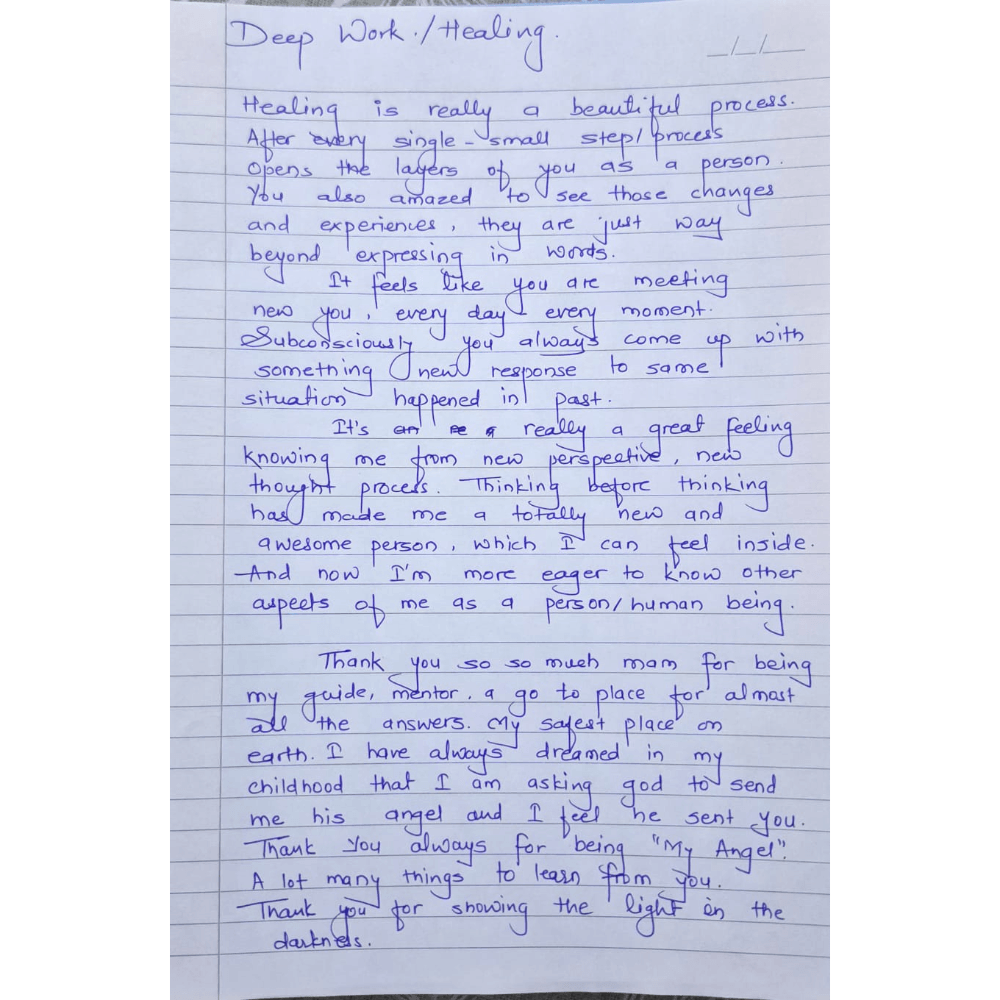 Deep Work./Healing.
_/_/_
Healing is really a beautiful process.
After every single - small step/process
opens the layers of you as a person.
You also amazed to see those changes
and experiences, they are just way
beyond expressing in words.
It feels like you are meeting
new you, every day - every moment.
Subconsciously you always come up with
something new response to same
situation happened in past.
It's really a great feeling
knowing me from new perspective, new
thought process. Thinking before thinking
has made me a totally new and
awesome person, which I can feel inside.
And now I'm more eager to know other
aspects of me as a person/human being.
Thank you so so much mam for being
my guide, mentor, a go to place for almost
all the answers. My safest place on
earth. I have always dreamed in my
childhood that I am asking god to send
me his angel and I feel he sent you.
Thank You always for being "My Angel".
A lot many things to learn from you.
Thank you for showing the light in the
darkness.